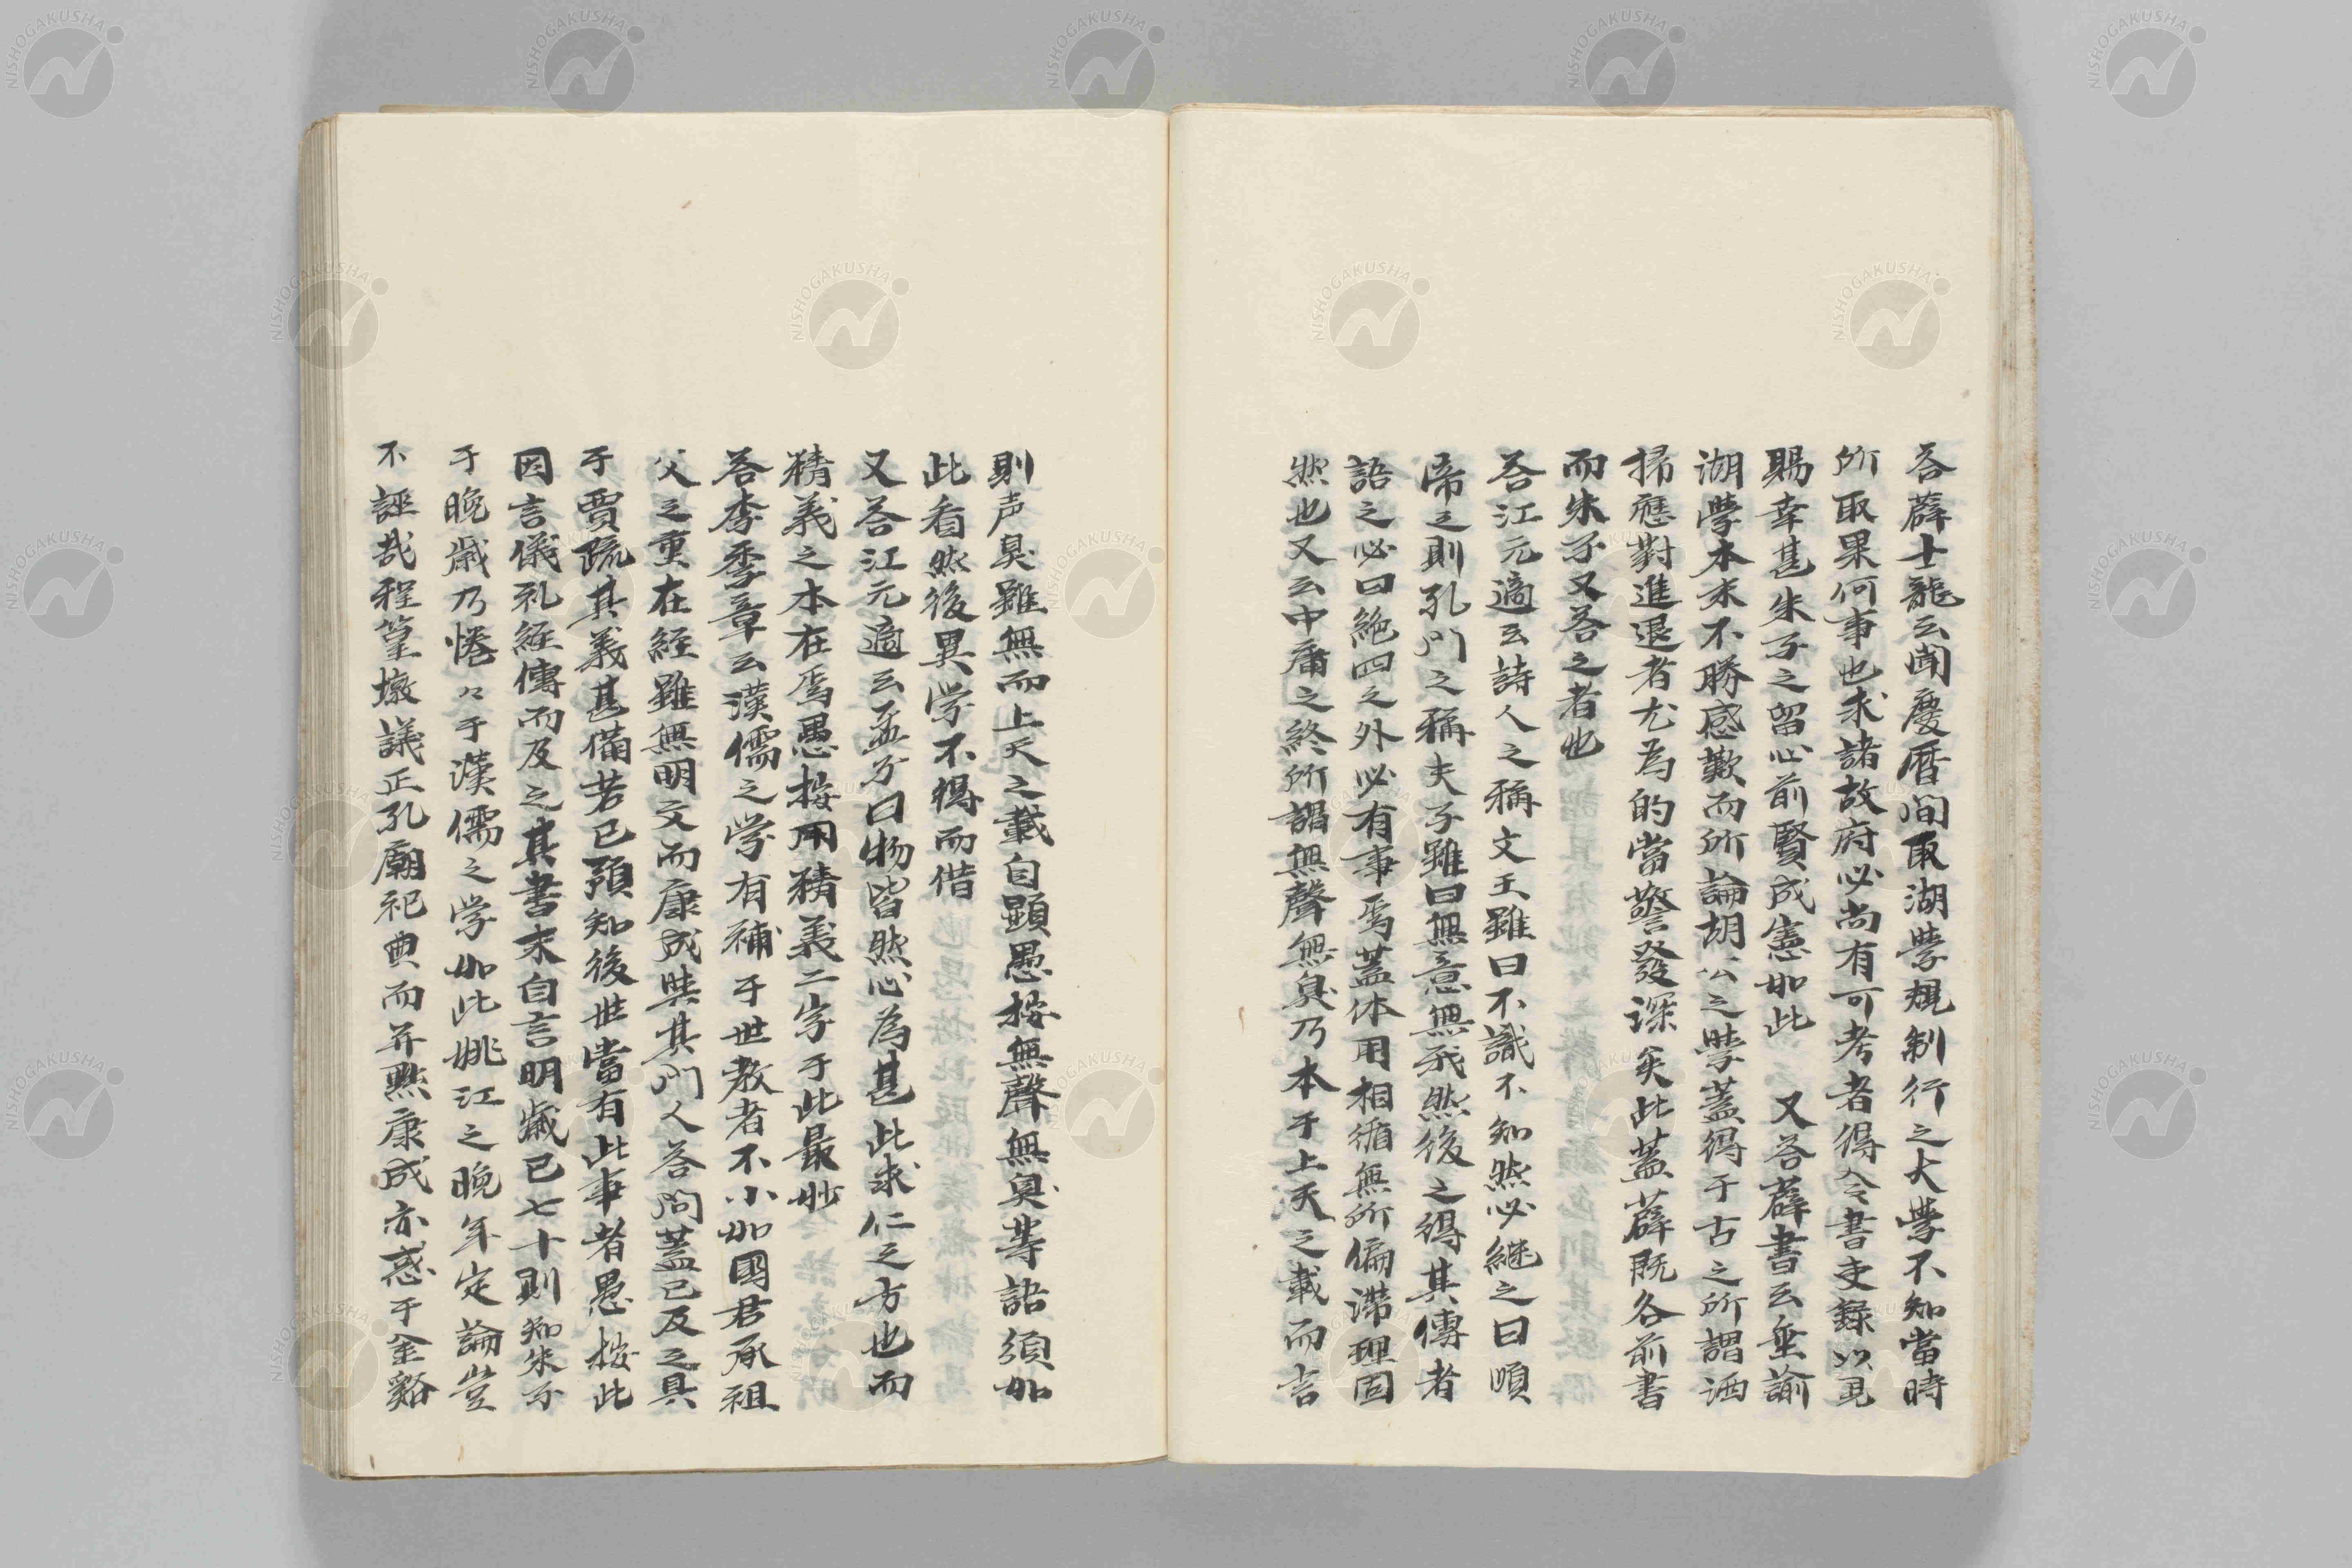 答薛士龍云聞慶曆間取湖學規制行之大學不知當時
所取果何事也求諸故府必尚有可考者得令書吏錄以見
賜幸甚朱子之留心前賢成憲如此　又答薛書云垂諭
湖學本末不勝感歎而所論胡公之學蓋得于古之所謂洒
掃應對進退者尤為的當警發深矣此蓋薛既答前書
而朱子又答之者也
答江元適云詩人之稱文王雖曰不識不知然必繼之曰順
帝之則孔門之稱夫子雖曰無意無我然後之得其傳者
語之必曰絶四之外必有事焉蓋体用相循無所偏滯理固
然也又云中庸之終所謂無聲無臭乃本于上天之載而言
則声臭雖無而上天之載自顕愚按無聲無臭等語須如
此看然後異学不得而借
又答江元適云孟子曰物皆然心為甚此求仁之方也而
精義之本在焉愚按用精義二字于此最妙
答李季章云漢儒之学有補于世教者不小如國君承祖
父之重在經雖無明文而康成與其門人答問蓋已及之具
于賈疏其義甚備若已預知後世當有此事者愚按此
因言儀礼経傳而及之其書末自言明歳已七十則知朱子
于晩歳乃惓々于漢儒之学如此姚江之晩年定論豈
不誣哉程篁墩議正孔廟祀典而并黜康成亦惑于金谿